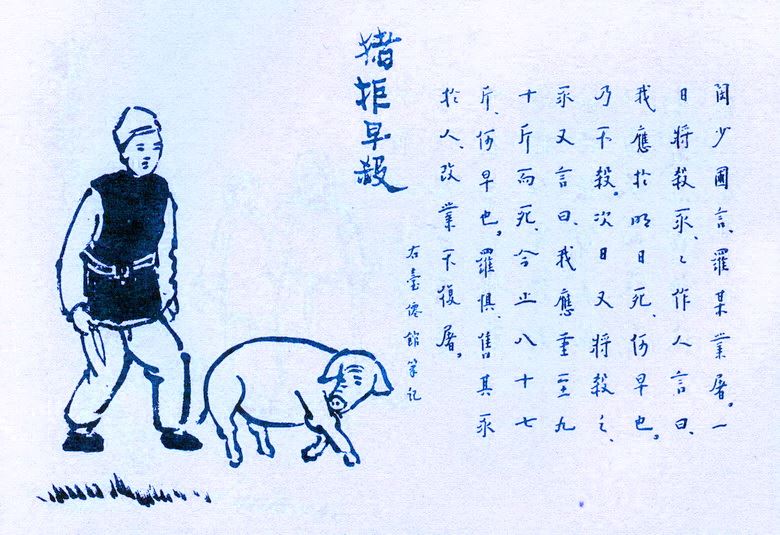 猪拒早殺
閔少圃言、羅某業屠。一
日將殺豕、〻作人言曰、
我應於明日死、何早也。
乃不殺。次日又將殺之、
豕又言曰、我應重至九
十斤而死、今止八十七
斤、何早也。羅惧、售其豕
於人、改業不復屠。
右臺僊館筆記